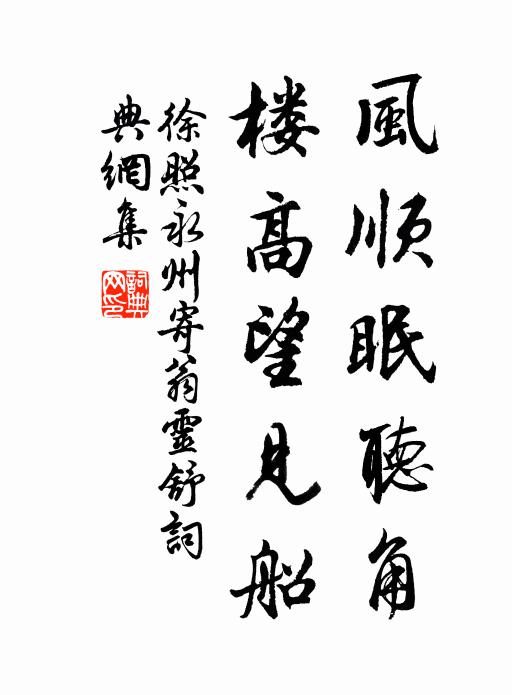 風順眠聽角
楼高望見船
徐照永州寄翁靈舒詞
典網集
詞典
网印